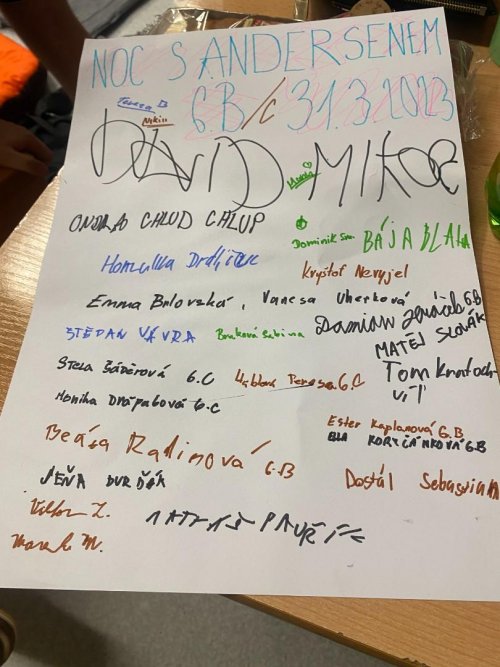 NOC S ANDERSENEM
6.B/C 31.3.2023
Tereza B
Nikča
DAVID MIKOE
ONDRA CHLUD CHLUP
Dominik Sm. BÁJA BLAHA
Kryštof Nevyjel
Emma Brlovská, Vanesa Uherková
Damian 6.B
ŠTĚPÁN VÁVRA
Bruková Sabina
MATĚJ SLOVÁK
Stela Šáderová 6.C
Tereza 6.C
Tom
VÍT
Monika Drápabová 6.C
Ester Kaplanová 6.B
ELA KORYČÁNKOVÁ 6.B
Beáta Radimová 6.B
JEŇA DURĎÁK
Dostál Sebastian
Viktor Z.
Marek M.